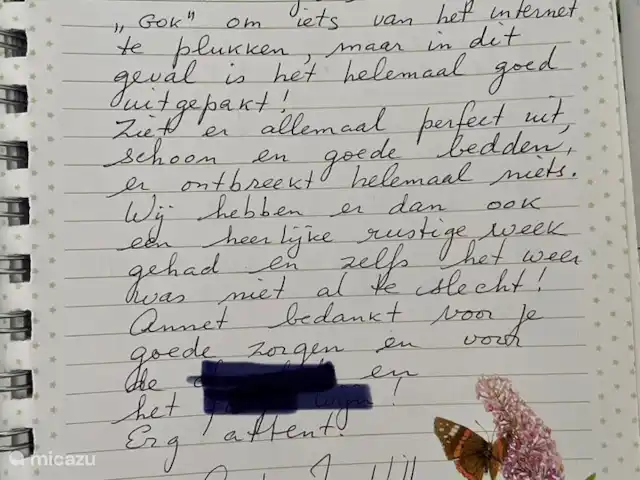 „GOK" om iets van het internet
te plukken, maar in dit
geval is het helemaal goed
uitgepakt!
Ziet er allemaal perfect uit,
schoon en goede bedden,
er ontbreekt helemaal niets.
Wij hebben er dan ook
een heerlijke rustige week
gehad en zelfs het weer
was niet al te slecht!
Annet bedankt voor je
goede zorgen en voor
de en
het wijn!
Erg attent!
micazu